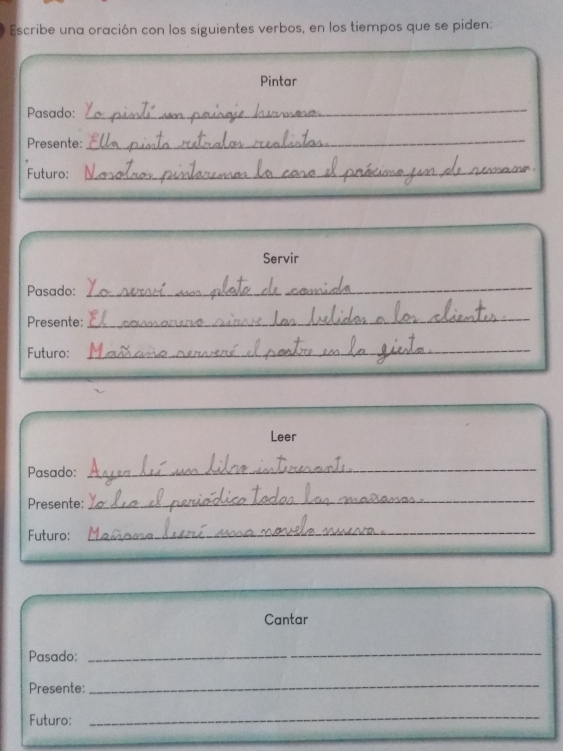 Escribe una oración con los siguientes verbos, en los tiempos que se piden:
Pintar
Pasado: Yo pinté un paisaje hermoso.
Presente: Ella pinta retratos realistas.
Futuro: Nosotros pintaremos la casa el próximo fin de semana.
Servir
Pasado: Yo serví un plato de comida
Presente: El camarero sirve las bebidas a los clientes.
Futuro: Mañana serveré el postre en la fiesta.
Leer
Pasado: Ayer leí un libro interesante.
Presente: Yo leo el periódico todas las mañanas.
Futuro: Mañana leeré una novela nueva.
Cantar
Pasado:
Presente:
Futuro: